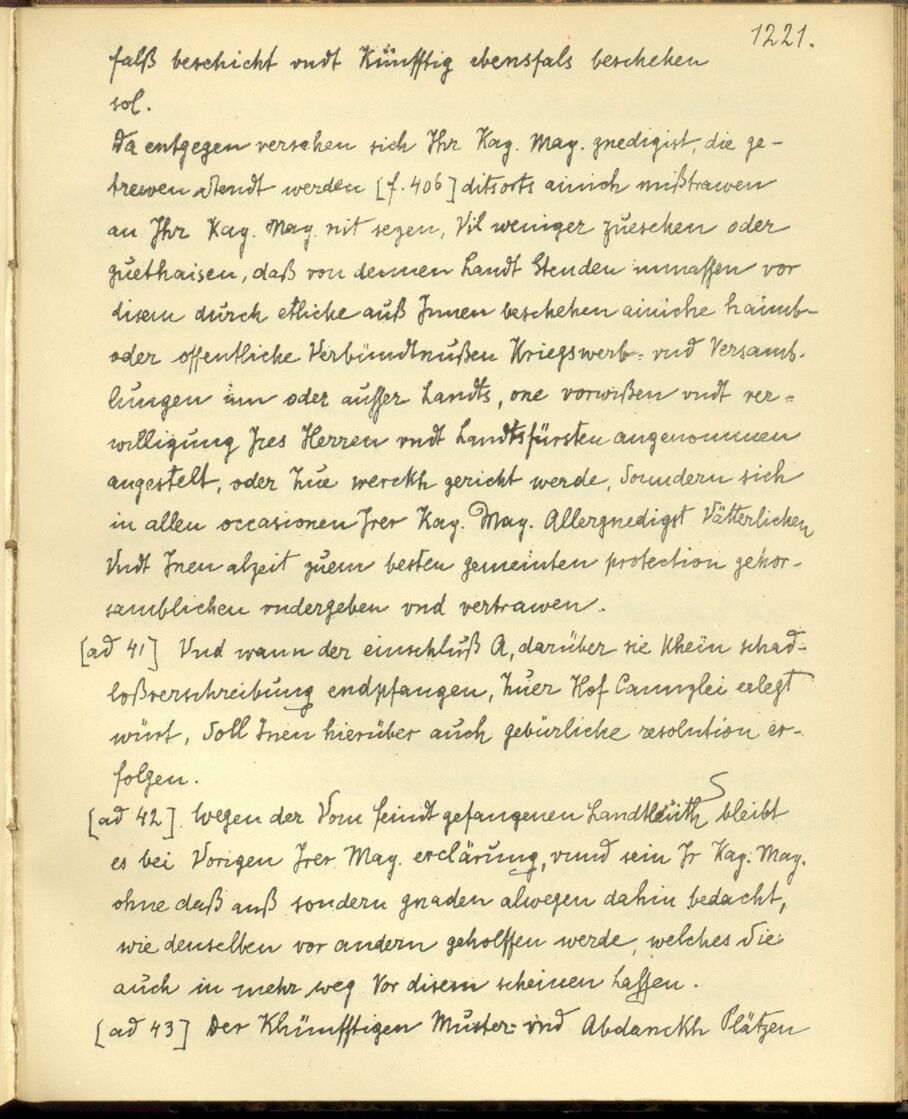 1221.
falß beschicht vndt Künfftig ebensfals beschehen
sol.
Da entgegen versehen sich Ihr Kay. May. gnedigist, die ge-
trewen Stendt werden [f. 406] ditsorts ainich mißtrawen
an Ihr Kay. May. nit sezen, Vil weniger zuesehen oder
guethaisen, daß von dennen Landt Stenden inmassen vor
disem durch etliche auß Innen beschehen ainiche haimb-
oder offentliche Verbündtnußen Kriegswerb- vnd Versamb-
lungen inn oder ausser Landts, one vorwißen vndt ver=
willigung Ires Herren vndt Landtsfürsten angenommen
angestelt, oder Zue werckh gericht werde, Sonndern sich
in allen occasionen Irer Kay. May. Allergnedigst Vätterlichen
Vndt Inen alzeit zuem besten gemeinten protection gehor-
samblichen vndergeben vnd vertrawen.
[ad 41] Vnd wann der einschluß A, darüber sie Khein schad-
loßverschreibung endpfangen, Zuer Hof Canntzlei erlegt
würt, Soll Inen hierüber auch gebürliche resolution er-
folgen.
[ad 42] Wegen der Vom feindt gefangenen Landtleüth bleibt
es bei Vorigen Irer May. erclärung, vnnd sein Ir Kay. May.
ohne daß auß sondern gnaden alwegen dahin bedacht,
wie denselben vor andern geholffen werde, welches Sie
auch in mehr weg Vor disem scheinen lassen.
[ad 43] Der Khünfftigen Muster- vnd Abdanckh Plätzen